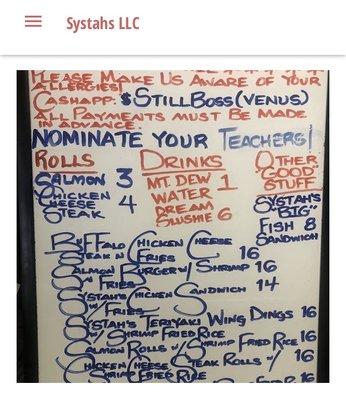 Systahs LLC
PLEASE MAKE US AWARE OF YOUR
ALLERGIES!
CASHAPP: $STILLBOSS (VENUS)
ALL PAYMENTS MUST BE MADE
IN ADVANCE.
NOMINATE YOUR TEACHERS!
ROLLS
SALMON 3
CHICKEN CHEESE STEAK 4
DRINKS
MT. DEW 1
WATER
DREAM SLUSHIE 6
OTHER "GOOD" STUFF
SYSTAH'S "BIG" FISH 8 SANDWICH
BUFFALO CHICKEN CHEESE
STEAK N FRIES 16
SALMON BURGER W/ SHRIMP 16
W/ FRIES
SYSTAH'S CHICKEN SANDWICH 14
W/ FRIES
SYSTAH'S TERIYAKI WING DINGS 16
W/ SHRIMP FRIED RICE
SALMON ROLLS W/ SHRIMP FRIED RICE 16
CHICKEN CHEESE STEAK ROLLS W/ 16
SHRIMP FRIED RICE